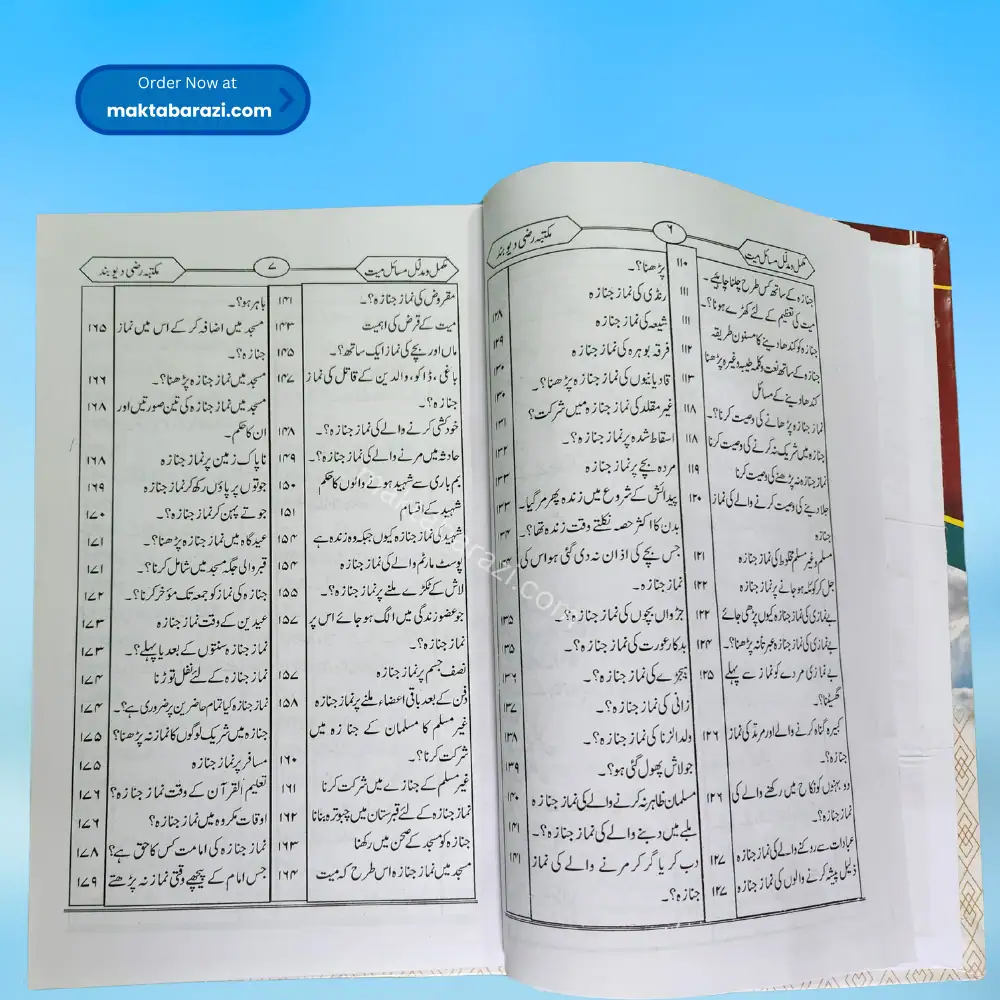 Order Now at
maktabarazi.com
مکمل و مدلل مسائل میت
۶
مکتبہ رضی دیوبند
جنازہ کے ساتھ کس طرح چلنا چاہیے۔ ۱۱۰
میت کی تعظیم کے لئے کھڑے ہونا؟۔ ۱۱۱
جنازہ کو کندھا دینے کا مسنون طریقہ ۱۱۱
جنازہ کے ساتھ نعت و کلمہ طیبہ وغیرہ پڑھنا ۱۱۲
کندھا دینے کے مسائل ۱۱۳
نماز جنازہ پڑھانے کی وصیت کرنا؟۔ ۱۱۸
جنازہ میں شریک نہ کرنے کی وصیت کرنا ۱۱۸
نماز جنازہ نہ پڑھنے کی وصیت کرنا ۱۱۹
جلا دینے کی وصیت کرنے والے کی نماز ۱۲۰
جنازہ
مسلم وغیر مسلم مخلوط کی نماز جنازہ ۱۲۱
جل کر کوئلہ ہو جانے پر نماز جنازہ ۱۲۲
بے نمازی کی نماز جنازہ کیوں پڑھی جائے ۱۲۲
بے نمازی کی نماز جنازہ عبرتاً نہ پڑھنا؟۔ ۱۲۴
بے نمازی مردے کو نماز سے پہلے ۱۲۵
گھسیٹنا؟۔
کبیرہ گناہ کرنے والے اور مرتد کی نماز ۱۲۶
جنازہ؟۔
دو بہنوں کو نکاح میں رکھنے والے کی ۱۲۶
نماز جنازہ؟۔
عبادات سے روکنے والے کی نماز جنازہ ۱۲۷
ذلیل پیشہ کرنے والوں کی نماز جنازہ ۱۲۷
پڑھنا؟۔
رنڈی کی نماز جنازہ ۱۲۸
شیعہ کی نماز جنازہ ۱۲۹
فرقہ بوہرہ کی نماز جنازہ ۱۳۰
قادیانیوں کی نماز جنازہ پڑھنا؟۔ ۱۳۰
غیر مقلد کی نماز جنازہ میں شرکت؟ ۱۳۱
اسقاط شدہ پر نماز جنازہ؟۔ ۱۳۲
مردہ بچے پر نماز جنازہ ۱۳۳
پیدائش کے شروع میں زندہ پھر مر گیا۔ ۱۳۳
بدن کا اکثر حصہ نکلتے وقت زندہ تھا؟۔
جس بچے کی اذان نہ دی گئی ہو اس کی
نماز جنازہ۔
جڑواں بچوں کی نماز جنازہ؟۔ ۱۳۵
بدکار عورت کی نماز جنازہ؟۔ ۱۳۵
ہیجڑے کی نماز جنازہ؟۔ ۱۳۶
زانی کی نماز جنازہ؟۔ ۱۳۷
ولد الزنا کی نماز جنازہ؟۔ ۱۳۸
جو لاش پھول گئی ہو؟۔ ۱۳۹
مسلمان ظاہر نہ کرنے والے کی نماز جنازہ ۱۴۰
ملبے میں دبنے والے کی نماز جنازہ؟۔ ۱۴۱
دب کر یا گر کر مرنے والے کی نماز ۱۴۱
جنازہ؟۔
مکمل و مدلل مسائل میت
۷
مکتبہ رضی دیوبند
مقروض کی نماز جنازہ؟۔ ۱۴۱
میت کے قرض کی اہمیت ۱۴۳
ماں اور بچے کی نماز ایک ساتھ؟۔ ۱۴۵
باغی، ڈاکو، والدین کے قاتل کی نماز ۱۴۷
جنازہ؟۔
خودکشی کرنے والے کی نماز جنازہ؟۔ ۱۴۸
حادثہ میں مرنے والے کی نماز جنازہ؟۔ ۱۴۹
بم باری سے شہید ہونے والوں کا حکم ۱۵۰
شہید کے اقسام ۱۵۱
شہید کی نماز جنازہ کیوں جبکہ وہ زندہ ہے ۱۵۴
پوسٹ مارٹم والے کی نماز جنازہ ۱۵۴
لاش کے ٹکڑے ملنے پر نماز جنازہ؟۔ ۱۵۵
جو عضو زندگی میں الگ ہو جائے اس پر ۱۵۷
نماز جنازہ؟۔
نصف جسم پر نماز جنازہ ۱۵۷
دفن کے بعد باقی اعضاء ملنے پر نماز جنازہ ۱۵۸
غیر مسلم کا مسلمان کے جنازہ میں
شرکت کرنا؟۔ ۱۶۰
غیر مسلم کے جنازے میں شرکت کرنا ۱۶۱
نماز جنازہ کے لئے قبرستان میں چبوترہ بنانا ۱۶۲
جنازہ کو مسجد کے صحن میں رکھنا ۱۶۳
مسجد میں نماز جنازہ اس طرح کہ میت ۱۶۴
باہر ہو؟۔
مسجد میں اضافہ کر کے اس میں نماز ۱۶۵
جنازہ؟۔
مسجد میں نماز جنازہ پڑھنا؟۔ ۱۶۶
مسجد میں نماز جنازہ کی تین صورتیں اور ۱۶۸
ان کا حکم۔
ناپاک زمین پر نماز جنازہ ۱۶۸
جوتوں پر پاؤں رکھ کر نماز جنازہ ۱۶۹
جوتے پہن کر نماز جنازہ؟۔ ۱۷۰
عیدگاہ میں نماز جنازہ پڑھنا؟۔ ۱۷۱
قبر والی جگہ مسجد میں شامل کرنا؟۔ ۱۷۱
جنازہ کی نماز کو جمعہ تک مؤخر کرنا؟۔ ۱۷۲
عیدین کے وقت نماز جنازہ ۱۷۳
نماز جنازہ سنتوں کے بعد یا پہلے؟۔ ۱۷۳
نماز جنازہ کے لئے نفل توڑنا ۱۷۴
نماز جنازہ کیا تمام حاضرین پر ضروری ہے؟۔ ۱۷۴
جنازہ میں شریک لوگوں کا نماز نہ پڑھنا؟ ۱۷۵
مسافر پر نماز جنازہ ۱۷۵
تعلیم القرآن کے وقت نماز جنازہ؟ ۱۷۶
اوقات مکروہ میں نماز جنازہ؟ ۱۷۶
نماز جنازہ کی امامت کس کا حق ہے؟ ۱۷۸
جس امام کے پیچھے وقتی نماز نہ پڑھتے ۱۷۹
maktabarazi.com